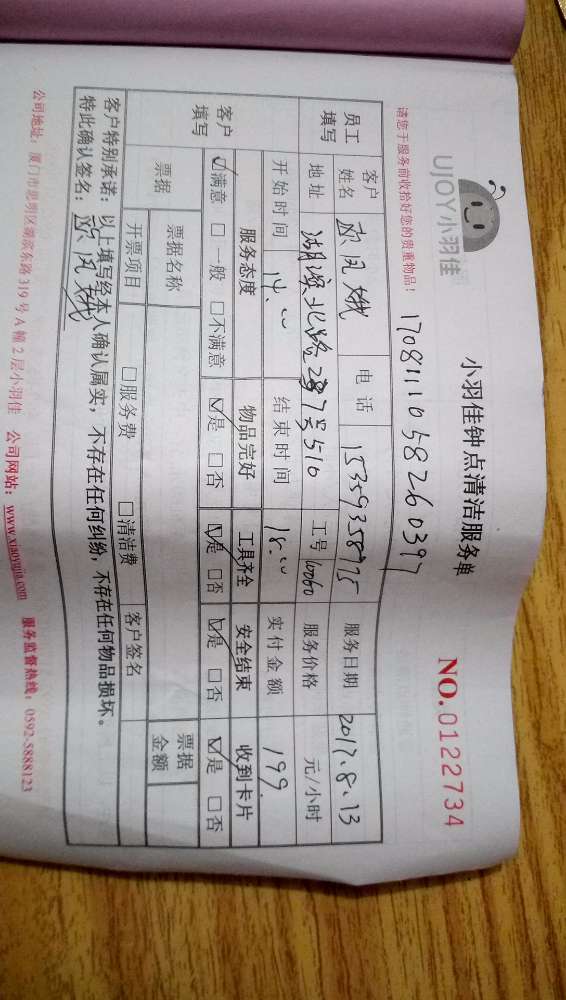 UJOY小羽佳
小羽佳钟点清洁服务单
NO.0122734
请您于服务前收拾好您的贵重物品！
1708111058260397
员工填写 客户姓名 欧凤娥 电话 15359358775 服务日期 2017.8.13
地址 湖滨北路287号510 工号 10060 服务价格 元/小时
开始时间 14:00 结束时间 18:00 实付金额 199.
客户填写 服务态度 物品完好 工具齐全 安全结束 收到卡片
☑满意 □一般 □不满意 ☑是 □否 ☑是 □否 ☑是 □否 ☑是 □否
票据 票据名称 票据金额
开票项目 □服务费 □清洁费 客户签名
客户特别承诺：以上填写经本人确认属实，不存在任何纠纷，不存在任何物品损坏。
特此确认签名：欧凤娥
公司地址：厦门市思明区湖滨东路319号A幢2层小羽佳 公司网站：www.xiaoyujia.com 服务监督热线：0592-5888123